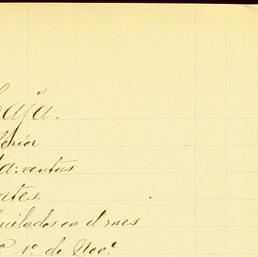 Caja.
erior
a: ventas
ntes.
uilados en el mes
1º de Novº